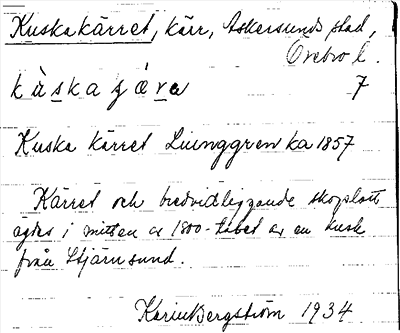 Kuskakärret, kärr, Askersunds stad,
Örebro l.
kùskaʒǽra 7
Kuska kärret Liunggren ka 1857
Kärret och bredvidliggande skogslott
ägdes i mitten av 1800-talet av en kusk
från Stjärnsund.
Karin Bergström 1934